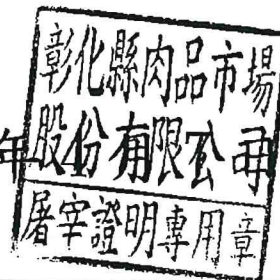 彰化縣肉品市場
年股份有限公司
屠宰證明專用章